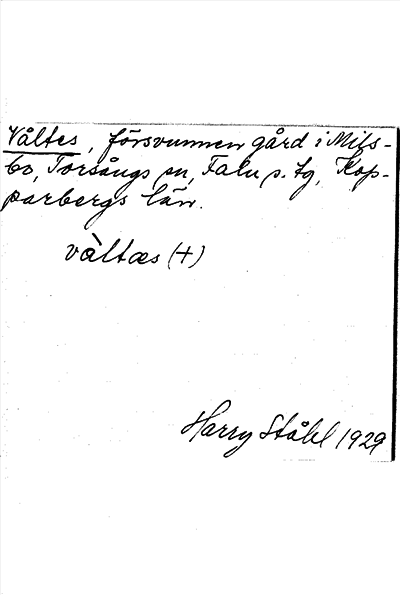 Våltes, försvunnen gård i Mils-
bo, Torsångs sn, Falu s. tg, Kop-
parbergs län.
våltæs (+)
Harry Ståhl 1929